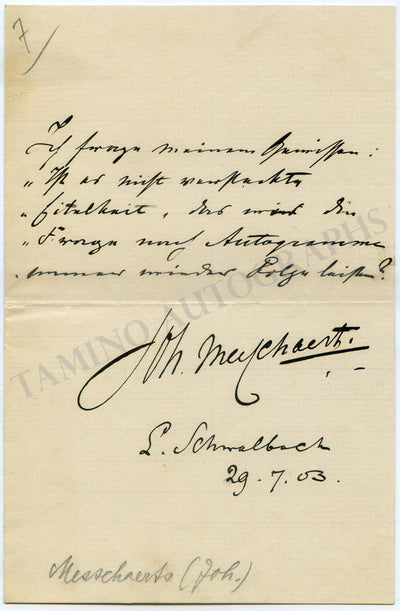 7
Ich frage meinem Gewissen:
„Ist es nicht versteckte
„Eitelkeit, das wir den
„Frage nach Autogramme
„immer wieder Folge leisten?
Joh. Messchaert.
L. Schwalbach
29.7.03.
Messchaerts (Joh.)
TAMINO AUTOGRAPHS